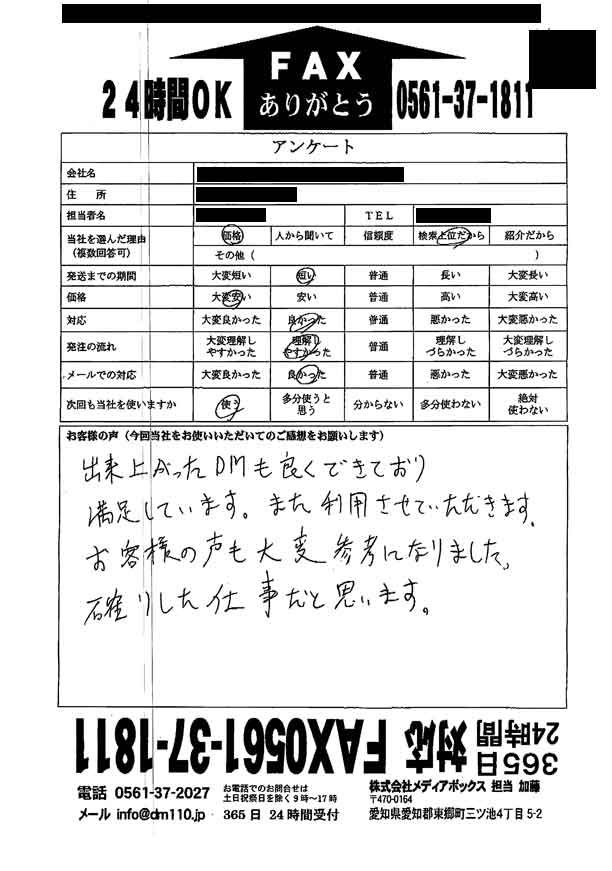 FAX
ありがとう
24時間OK
0561-37-1811
アンケート
会社名
住 所
担当者名 TEL
当社を選んだ理由(複数回答可) 価格 人から聞いて 信頼度 検索上位だから 紹介だから
その他( )
発送までの期間 大変短い 短い 普通 長い 大変長い
価格 大変安い 安い 普通 高い 大変高い
対応 大変良かった 良かった 普通 悪かった 大変悪かった
発注の流れ 大変理解しやすかった 理解しやすかった 普通 理解しづらかった 大変理解しづらかった
メールでの対応 大変良かった 良かった 普通 悪かった 大変悪かった
次回も当社を使いますか 使う 多分使うと思う 分からない 多分使わない 絶対使わない
お客様の声(今回当社をお使いいただいてのご感想をお願いします)
出来上がったDMも良くできており
満足しています。また利用させていただきます。
お客様の声も大変参考になりました。
確りした仕事だと思います。
365日24時間対応 FAX0561-37-1811
電話 0561-37-2027
お電話でのお問合せは
土日祝祭日を除く9時~17時
メール info@dm110.jp 365日 24時間受付
株式会社メディアボックス 担当 加藤
〒470-0164
愛知県愛知郡東郷町三ツ池4丁目5-2